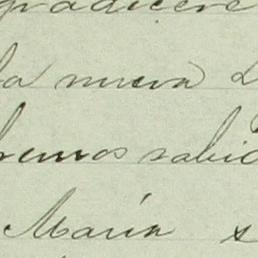 gradecere
la nueva
hemos sabid
María s